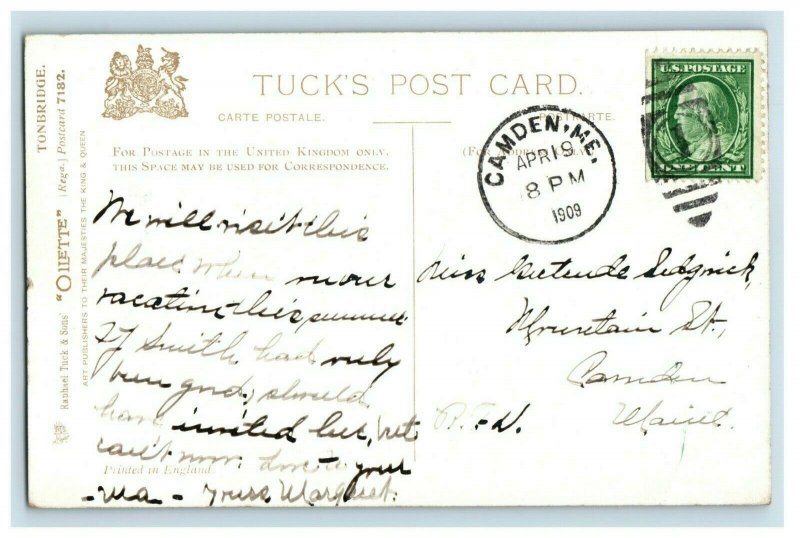 TUCK'S POST CARD.
CARTE POSTALE.
POSTKARTE.
FOR POSTAGE IN THE UNITED KINGDOM ONLY,
THIS SPACE MAY BE USED FOR CORRESPONDENCE.
(FOR ADDRESS ONLY.)
TONBRIDGE.
Raphael Tuck & Sons' "OILETTE" [Regd.] Postcard 7182.
ART PUBLISHERS TO THEIR MAJESTIES THE KING & QUEEN
CAMDEN, ME.
APR 19
8 PM
1909
U.S. POSTAGE
ONE CENT
We will visit this
place when on our
vacation this summer
If Smith had only
been good, should
have invited her, but
can't now. Love to your
-Ma- Yours Margaret.
Printed in England.
Miss Gertrude Sedgwick,
Mountain St.,
Camden
Maine.
R.F.D.